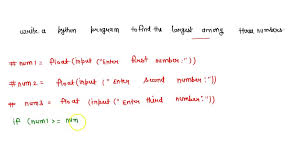 write a python program to find the largest among three numbers
# num1 = float(input("Enter first number:"))
# num2 = float(input("Enter second number:"))
# num3 = float(input("Enter third number:"))
if (num1 >= num